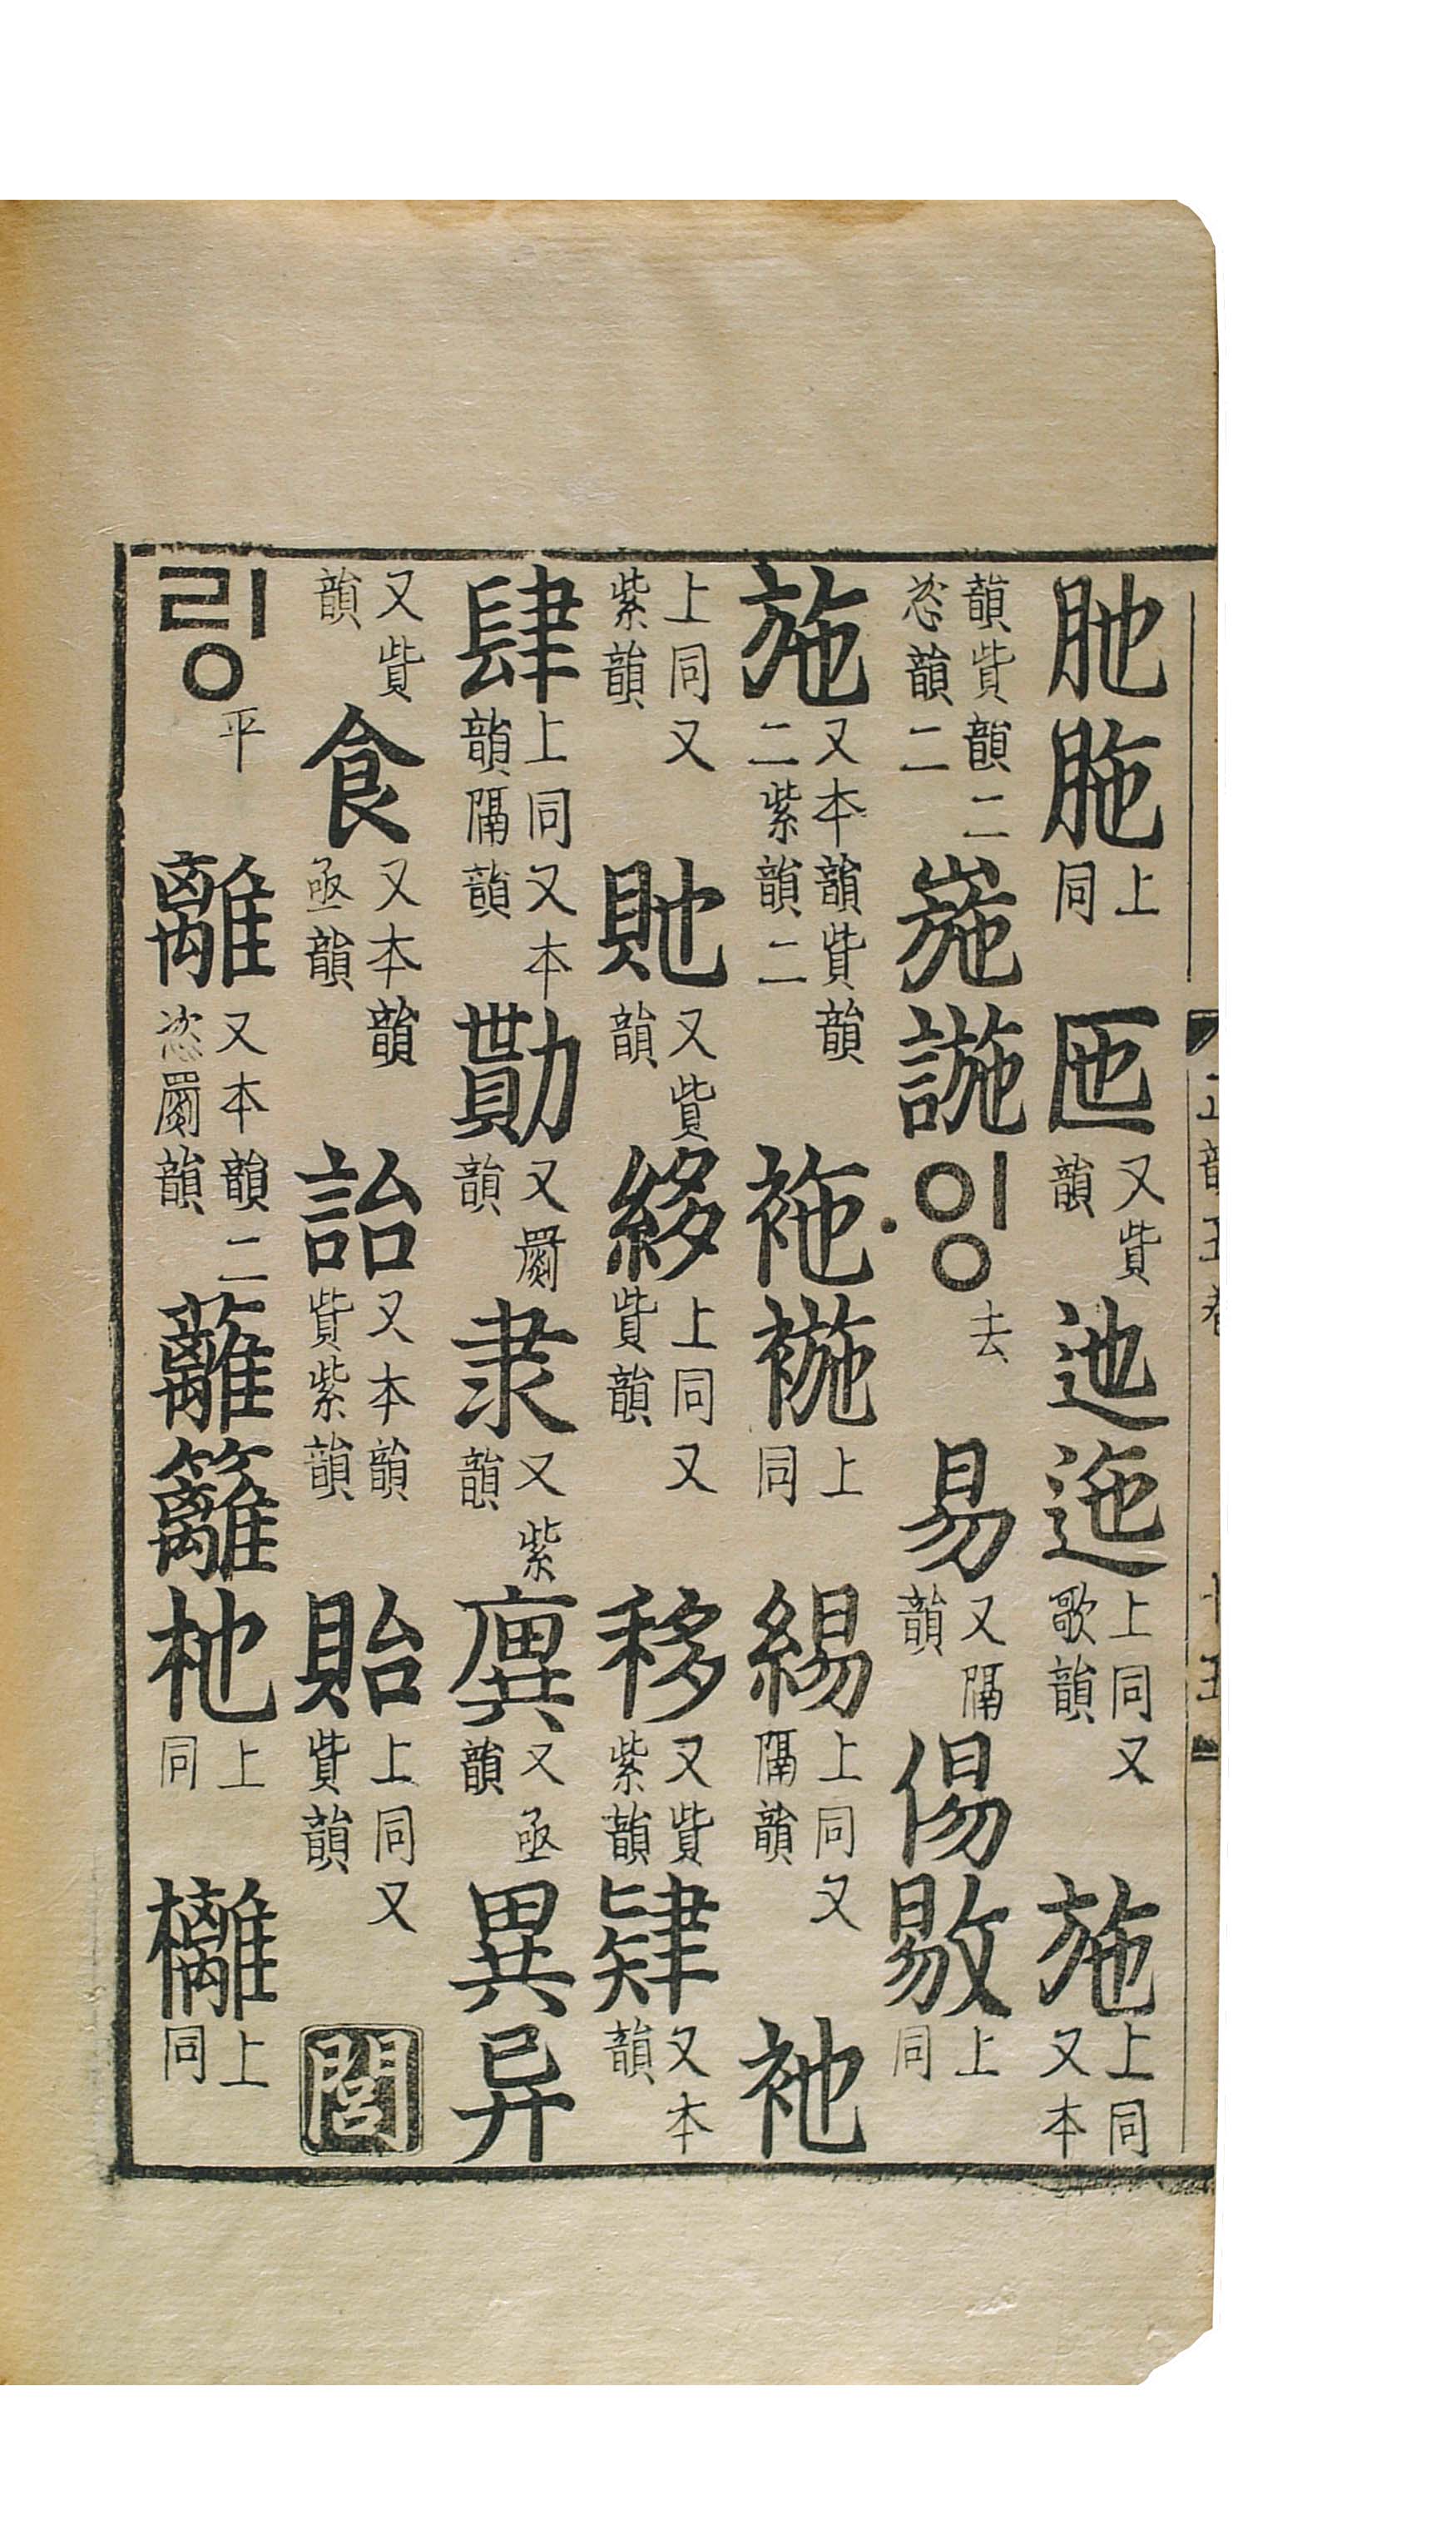 肔胣上同匜又貲韻迆迤上同又歌韻施上同又本
韻貲韻二恣韻二崺䛄잉去易又隔韻傷敡上同
施又本韻貲韻二紫韻二袘䙾上同緆上同又隔韻衪
上同又紫韻貤又貲韻䋾上同又貲韻移又貲紫韻肄又本韻
肆上同又本韻隔韻勩又罽韻隶又紫韻廙又亟韻異异
又貲韻食又本韻亟韻詒又本韻貲紫韻貽上同又貲韻閭
링平離又本韻二恣罽韻蘺籬杝上同樆上同